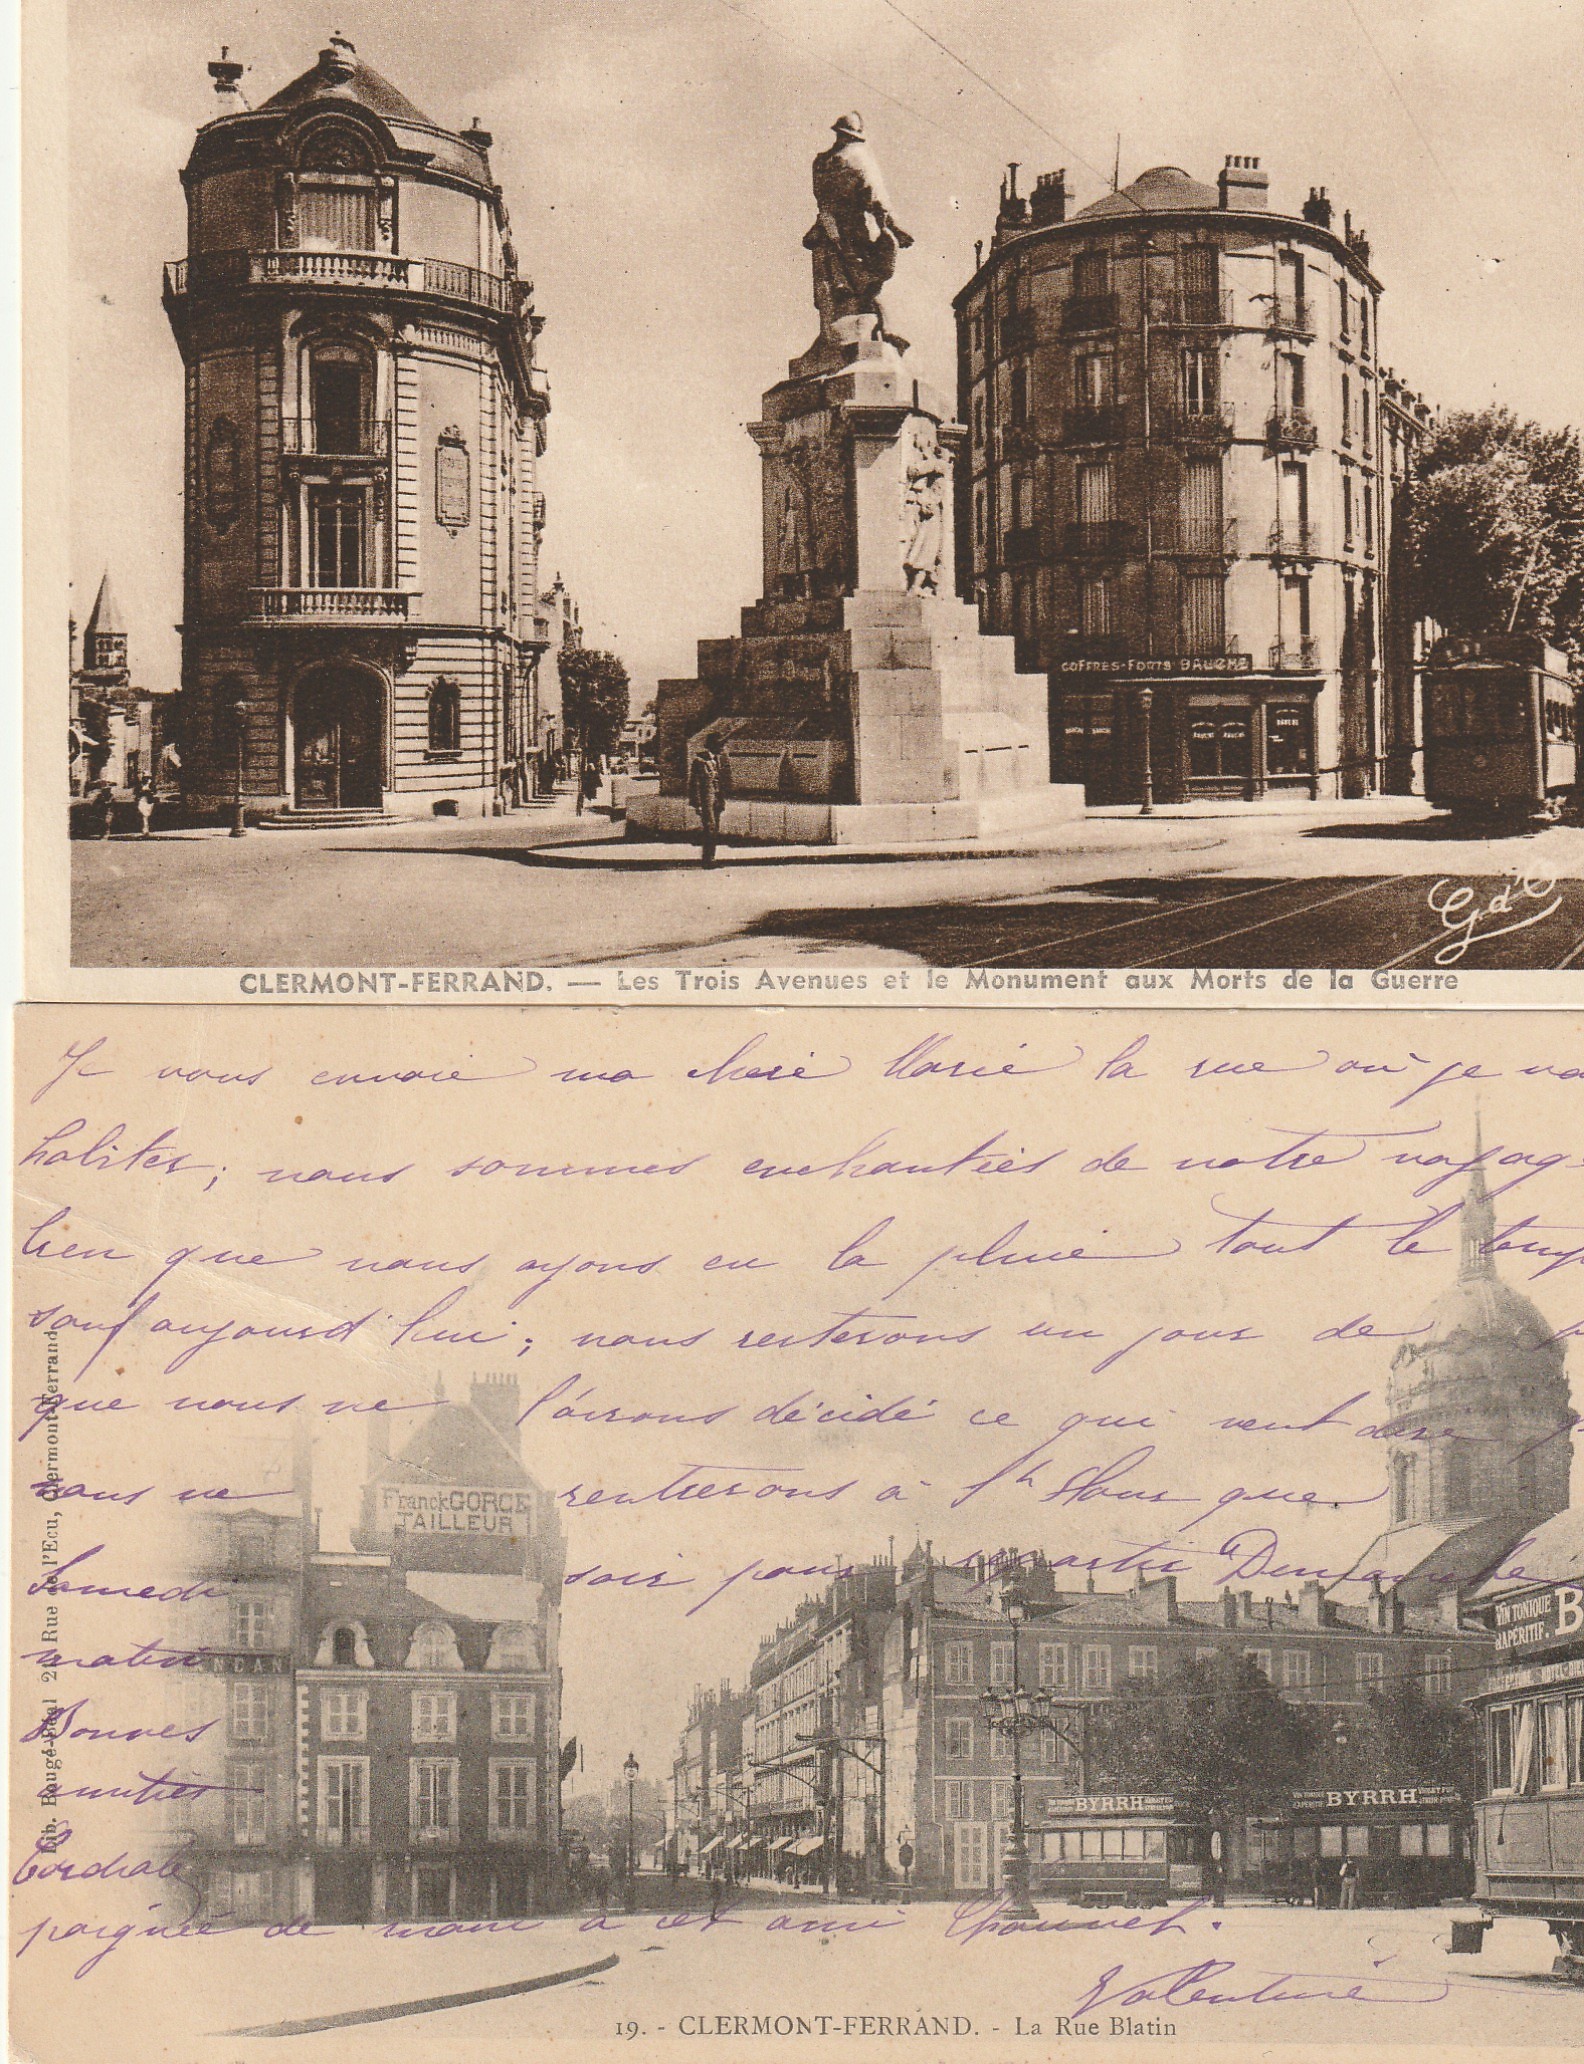 COFFRES-FORTS BAUCHE
Gd'O
CLERMONT-FERRAND. — Les Trois Avenues et le Monument aux Morts de la Guerre
Je vous envoie ma cheré Marie la rue où je va
habiter; nous sommes enchantiés de notre voyag
bien que nous ayons eu la pluie tout le temp
sauf aujourd'hui; nous resterons un jour de
que nous ne l'avions décidé ce qui veut dire q
nous ne rentrerons à que
Samedi soir pour repartir Dimanche
matin
Bonnes
amitiés
Cordiale
poignée de main à cet ami Chauvet.
Valentine
Lib. Bougé-Béal 21 Rue de l'Ecu, Clermont-Ferrand.
Franck GORCE
TAILLEUR
NCAN
VIN TONIQUE
APÉRITIF. B
BYRRH
BYRRH
19. - CLERMONT-FERRAND. - La Rue Blatin